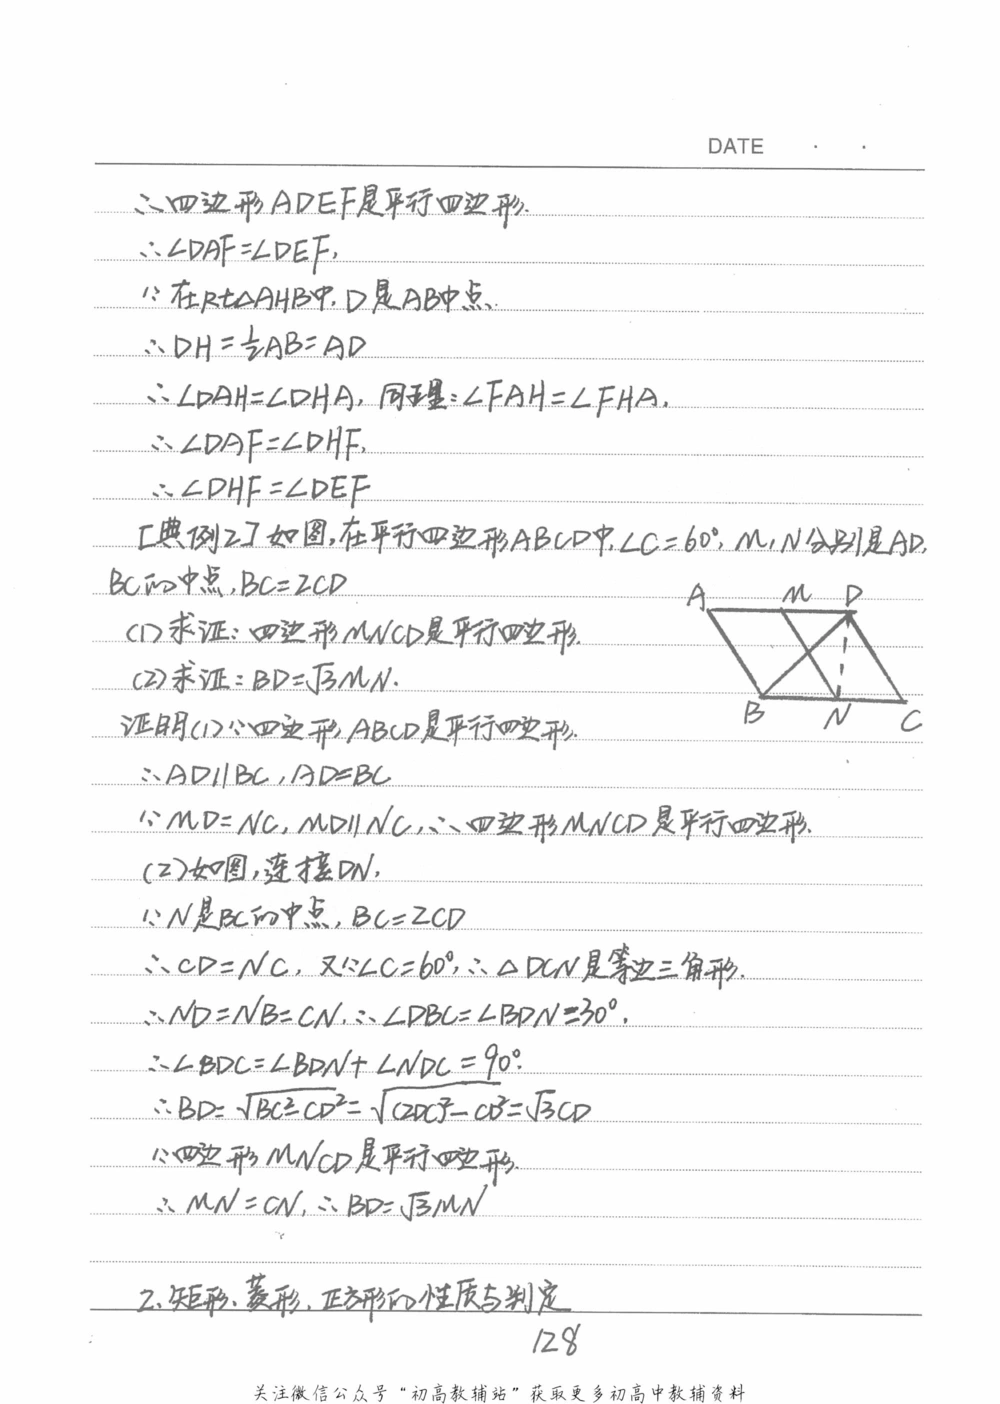 DATE · ·
∴四边形ADEF是平行四边形.
∴∠DAF=∠DEF,
∵在Rt△AHB中,D是AB中点.
∴DH=½AB=AD
∴∠DAH=∠DHA, 同理:∠FAH=∠FHA.
∴∠DAF=∠DHF,
∴∠DHF=∠DEF
[典例2]如图,在平行四边形ABCD中,∠C=60°, M,N分别是AD,
BC的中点,BC=2CD
(1)求证:四边形MNCD是平行四边形.
(2)求证:BD=√3MN.
A M D
B N C
证明(1)∵四边形ABCD是平行四边形.
∴AD//BC,AD=BC
∵MD=NC,MD//NC,∴四边形MNCD是平行四边形.
(2)如图,连接DN,
∵N是BC的中点,BC=2CD
∴CD=NC, 又∵∠C=60°,∴△DCN是等边三角形.
∴ND=NB=CN.∴∠DBC=∠BDN=30°.
∴∠BDC=∠BDN+∠NDC=90°.
∴BD=√BC²-CD²=√(2DC)²-CD²=√3CD
∵四边形MNCD是平行四边形.
∴MN=CN,∴BD=√3MN
2、矩形、菱形、正方形的性质与判定
128
关注微信公众号“初高教辅站”获取更多初高中教辅资料